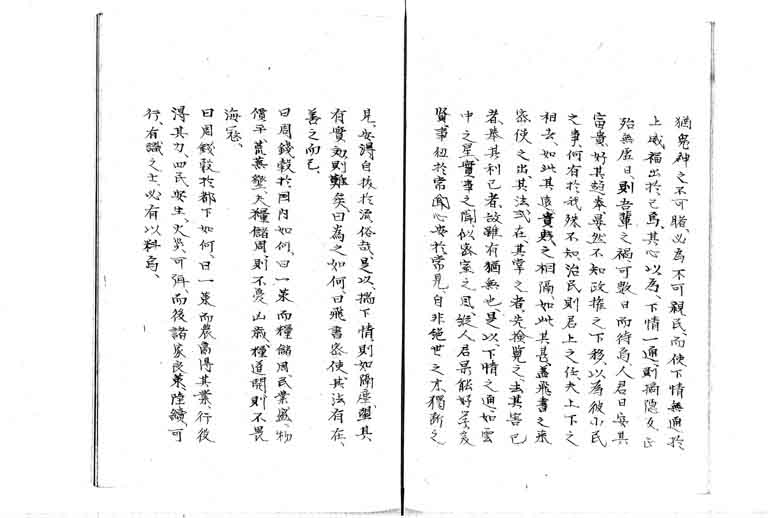 猶鬼神之不可睹、必為不可親民、而使下情無通於
上、威福出於己焉、其心以為、下情一通則摘隱文正
殆無虛日、則吾輩之禍可數日而待焉、人君日安其
富貴、好其超奉、曾然不知政權之下移、以為彼小民
之事、何有於我、殊不知、治民則君上之任、夫上下之
相去、如此其遠、貴賤之相隔、如此其甚、蓋飛書之來
密使之出、其法或在其掌之者、先撿覽之、去其害己
者、奉其利己者、故雖有猶無也、是以、下情之通、如雲
中之星、實事之聞、似密室之風、縱人君累能好
賢事、狃於常聞、心安於常見、自非絕世之才、獨斷之
見、安得自拔於流俗哉、是以、揣下情則如隔塵壁、其
有實效則難矣、曰為之如何、曰飛書密使、其法有在、
善之而已、
曰周錢穀於國內如何、曰一策而糧儲周、民業盛、物
價平、荒蕪墾、夫糧儲周、則不憂凶歲、糧道開則不畏
海寇、
曰周錢穀於都下如何、曰一策而農商得其業、行後
得其力、四民安生、火災可弭、而後諸家良策陸續可
行、有識之士、必有以料焉、